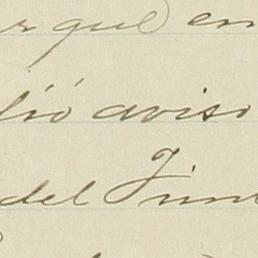 r que en
dió aviso
del Tim